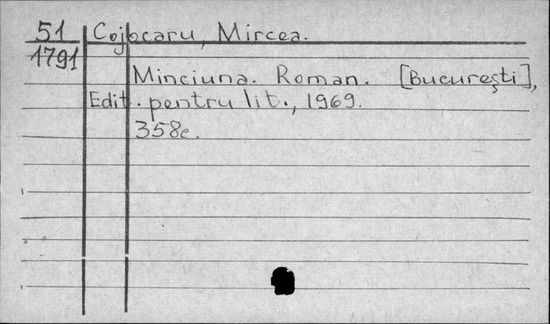 51 Cojocaru, Mircea.
1791
Minciuna. Roman. [București],
Edit. pentru lit., 1969.
358c.